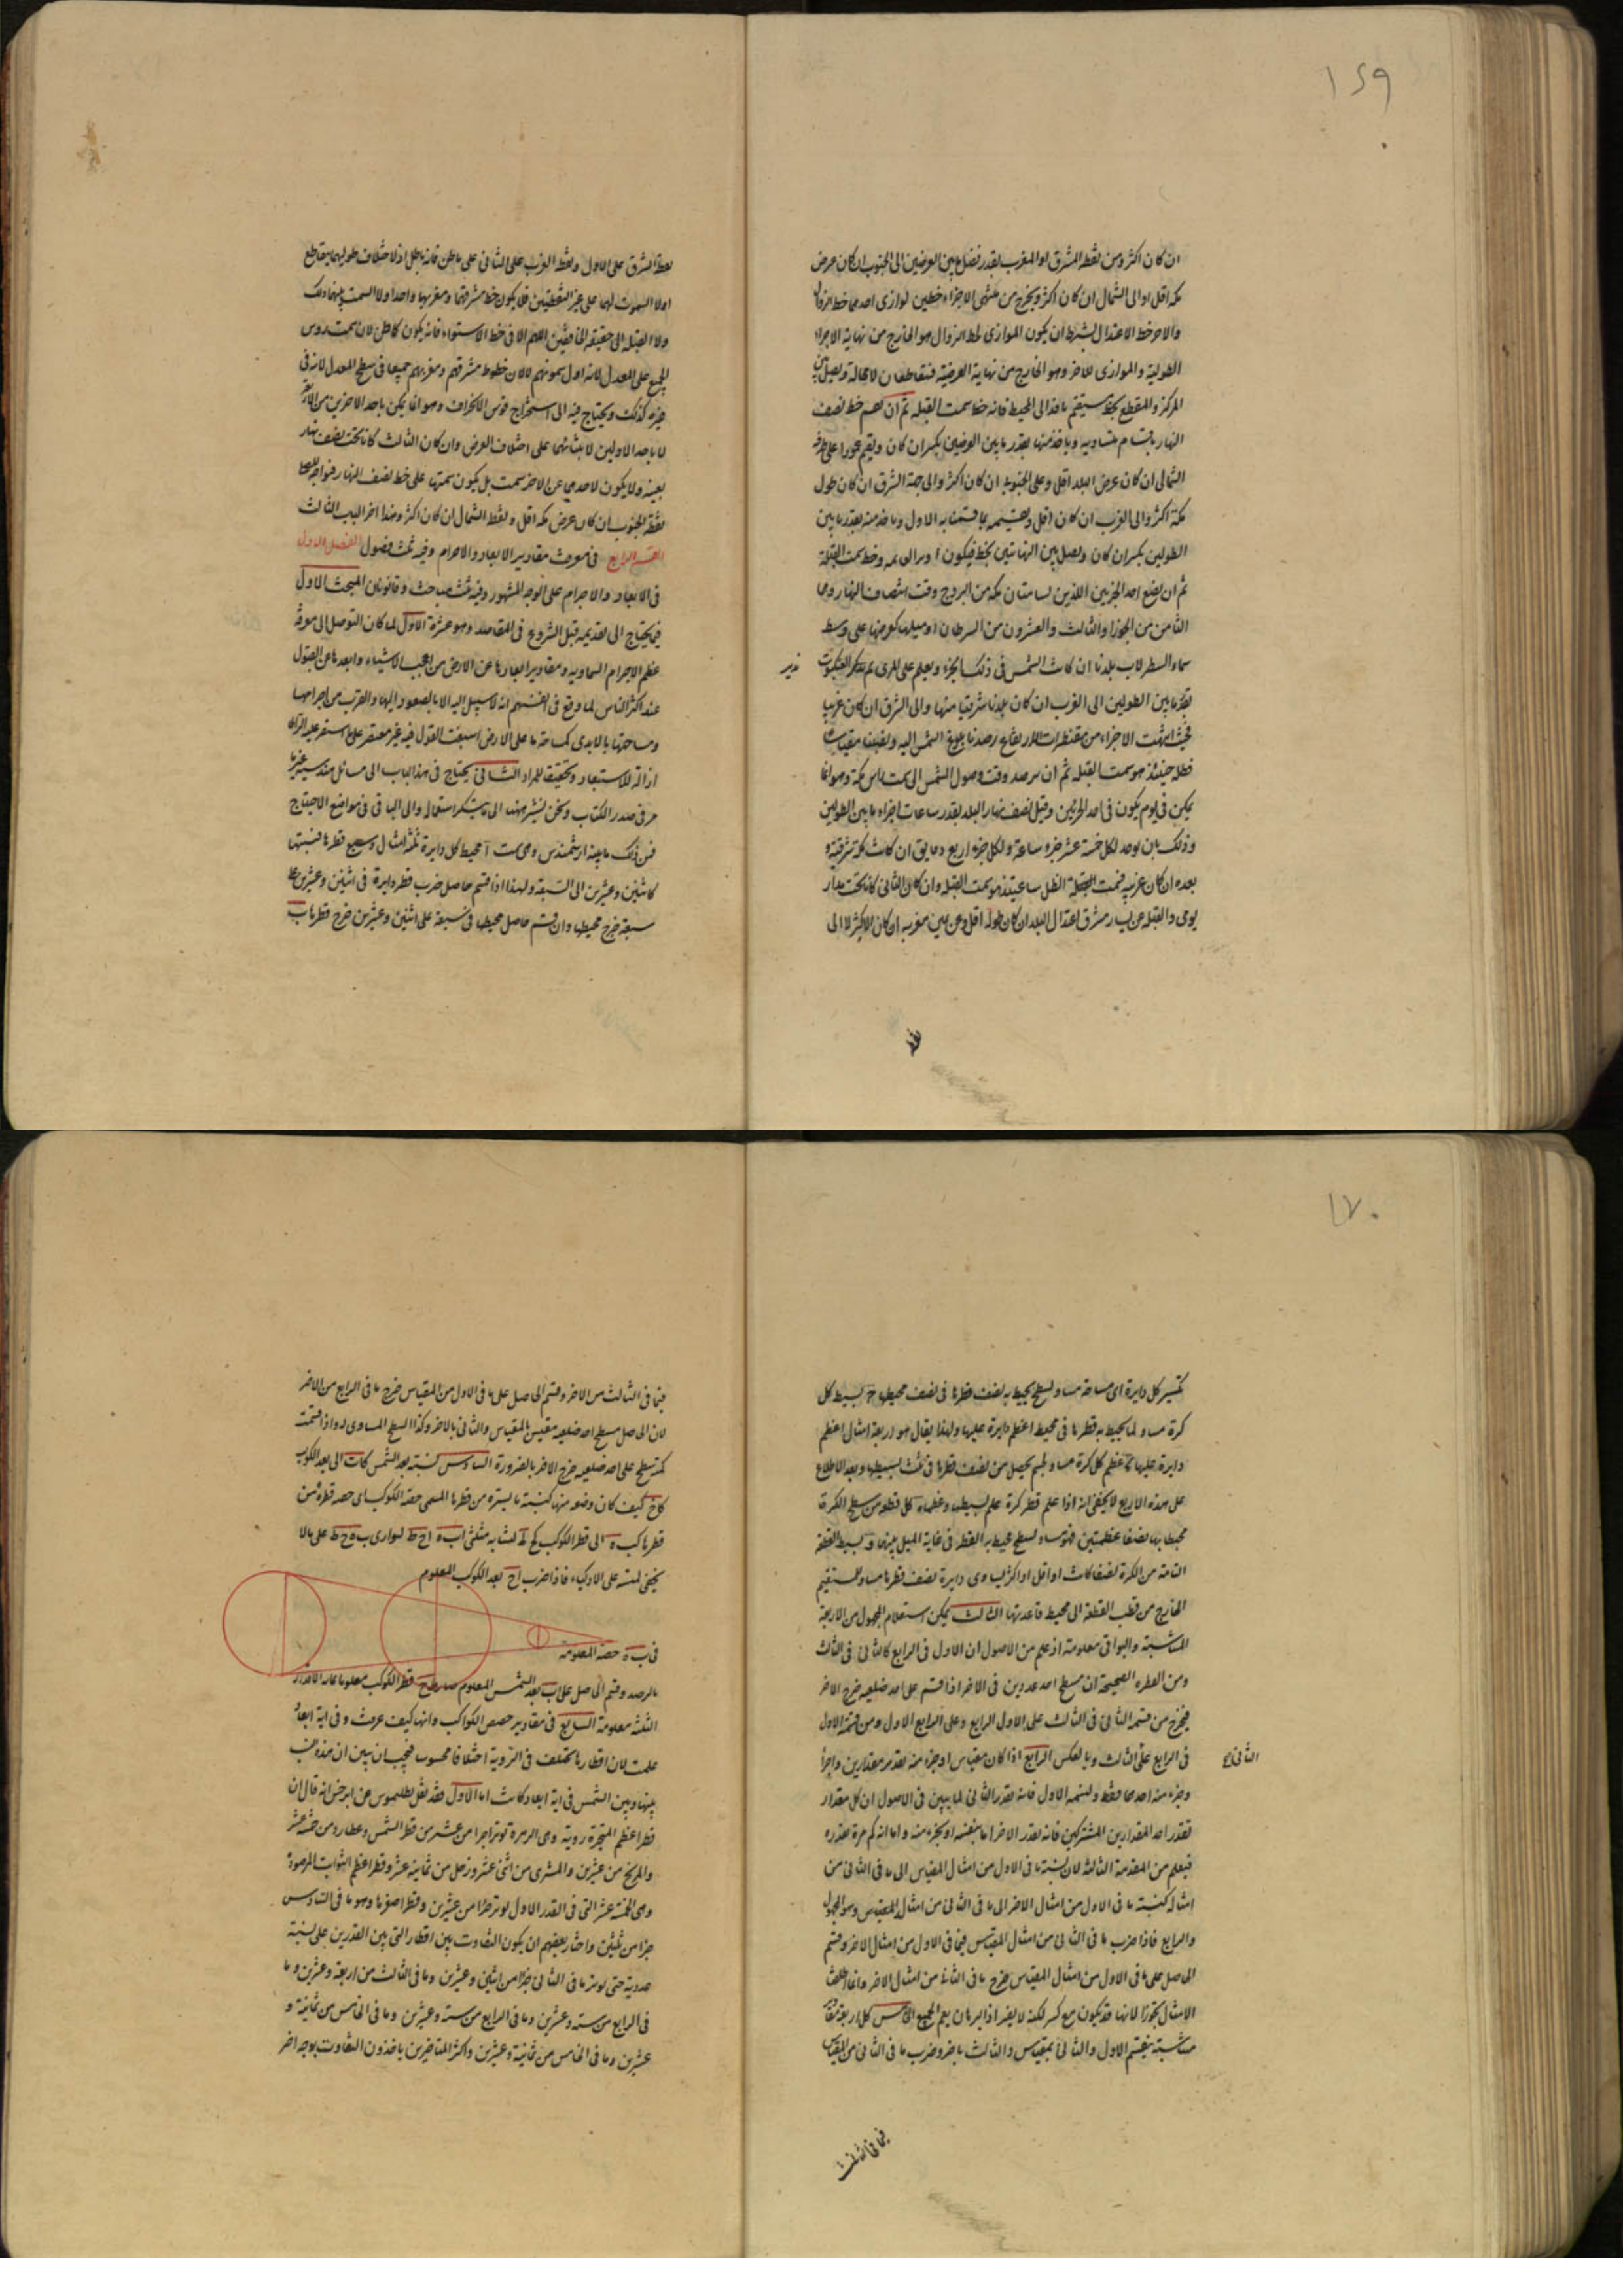 ١٦٩
ان كان اكثر ومن نقطة المشرق او المغرب بقدر فضل ما بين العرضين الى الجنوب ان كان عرض
مكة اقل او الى الشمال ان كان اكثر ويخرج من منتهى الاجزاء خطين يوازى احدهما خط الزوال
والاخر خط الاعتدال بشرط ان يكون الموازى لخط الزوال هو الخارج من نهاية الاجزاء
الطولية والموازى للاخر هو الخارج من نهاية العرضية فيتقاطعان لا محالة ويصل بين
المركز والمقطع بخط مستقيم نافذ الى المحيط فانه خط سمت القبله ثم ان يقسم خط نصف
النهار باقسام متساويه وياخذ منها بقدر ما بين العرضين بكسر ان كان ويقيم عمودا على طرفه
الشمالى ان كان عرض البلد اقل وعلى الجنوبى ان كان اكثر والى جهة الشرق ان كان طول
مكة اكثر والى الغرب ان كان اقل ويقسمه بما قسمنا به الاول وياخذ منه بقدر ما بين
الطولين بكسر ان كان ويصل بين النهايتين بخط فيكون وخط سمت القبلة
ثم ان يضع احد الجزئين اللذين يسامتان مكه من البروج وقت انتصاف النهار وهما
الثامن من الجوزا والثالث والعشرون من السرطان اذ ميلهما كعرضها على وسط
سماء اسطرلاب بلدنا ان كانت الشمس فى ذلك الجزء ويعلم على المرى ثم العنكبوت
بقدر ما بين الطولين الى الغرب ان كان بلدنا شرقيا منها والى الشرق ان كان غربيا
فحيث انتهت الاجزاء من مقنطرات الارتفاع رصدنا بلوغ الشمس اليه ونصبنا مقياسا
فظله حينئذ هو سمت القبله ثم ان يرصد وقت وصول الشمس الى سمت راس مكة وهو انما
يمكن فى يوم يكون فى احد الجزئين وقبل نصف نهار البلد بقدر ساعات اجزاء ما بين الطولين
وذلك بان يوخذ لكل خمسة عشر جزء ساعة ولكل جزء اربع دقايق ان كانت مكة شرقية و
بعده ان كان غربيه فسمت الظل ساعتئذ هو سمت القبله وان كان الثانى كانت تحت مدار
يومى والقبله عن يسار مشرق اعتدال البلد ان كان طوله اقل وعن يمين مغربه ان كان اكثر لا الى
نقطة الشرق على الاول ونقطة الغرب على الثانى على ما ظن فانه باطل اذ لاختلاف طوليهما يتقاطع
اول السموت لهما على غير النقطتين فلا يكون خط مشرقهما ومغربهما واحدا ولا السمت بينهما ذلك
ولا القبلة الى حقيقة الخافقين اللهم الا فى خط الاستواء فانه يكون كما ظن لان سمت رؤس
الجميع على المعدل لانه اول سموتهم لا لان خطوط مشرقهم ومغربهم جميعا فى سطح المعدل لانه فى
غيره كذلك ويحتاج فيه الى استخراج قوس الانحراف وهو انما يمكن باحد الاخرين من الاربعة
لا باحد الاولين لابتنائهما على اختلاف العرض وان كان الثالث كانا تحت نصف نهار
بعينه ولا يكون لاحدهما عن الاخر سمت بل يكون سمتها على خط نصف النهار فيواجه المصلى
نقطة الجنوب ان كان عرض مكه اقل ونقطة الشمال ان كان اكثر وهذا اخر الباب الثالث
القسم الرابع فى معرفة مقادير الابعاد والاجرام وفيه ثلث فصول الفصل الاول
فى الابعاد والاجرام على الوجه المشهور وفيه ثلث مباحث وقانونان المبحث الاول
فيما يحتاج الى تقديمه قبل الشروع فى المقاصد وهو عشرة الاول لما كان التوصل الى معرفة
عظم الاجرام السماويه ومقادير ابعادها عن الارض من اعجب الاشياء وابعدها عن القبول
عند اكثر الناس لما وقع فى انفسهم انه لا سبيل اليه الا بالصعود اليها والقرب من اجرامها
ومساحتها بالايدى كمساحة ما على الارض اسبغت القول فيه غير مقتصر على ما استقر عليه الراى
ازالة للاستبعاد وتحقيقا للمراد الثانى يحتاج فى هذا الباب الى مسائل هندسية غير ما
مر فى صدر الكتاب ونحن نشير ههنا الى ما يتكرر استعماله والى الباقى فى مواضع الاحتياج
فمن ذلك ما بينه ارشميدس وهى ست ا محيط كل دايرة ثلثة امثال وسبع قطرها فنسبتها
كاثنين وعشرين الى السبعة ولهذا اذا قسم حاصل ضرب قطر دايرة فى اثنين وعشرين على
سبعة خرج محيطها وان قسم حاصل محيطها فى سبعة على اثنين وعشرين خرج قطرها ب
١٧٠
تكسير كل دايرة اى مساحته مساو لسطح يحيط به نصف قطرها فى نصف محيطها ج بسيط كل
كرة مساو لما يحيط به قطرها فى محيط اعظم دايرة عليها ولهذا يقال هو اربعة امثال اعظم
دايرة عليها د عظم كل كرة مساو لجسم يحصل من نصف قطرها فى ثلث بسيطها وبعد الاطلاع
على هذه الاربع لا يخفى انه اذا علم قطر كرة علم بسيطها وعظمها ه كل قطعه من سطح الكرة
محيط بها نصفا عظيمتين فهو مساو لسطح محيط به القطر فى غاية الميل بينهما و بسيط القطعة
التامة من الكرة نصفا كانت او اقل او اكثر يساوى دايرة نصف قطرها مساو للمستقيم
الخارج من قطب القطعة الى محيط قاعدتها الثالث يمكن استعلام المجهول من الاربعة
المتناسبة والبواقى معلومة اذ علم من الاصول ان الاول فى الرابع كالثانى فى الثالث
ومن الفطره الصحيحة ان مسطح احد عددين فى الاخر اذا قسم على احد ضلعيه خرج الاخر
فيخرج من قسمة الثانى فى الثالث على الاول الرابع وعلى الرابع الاول ومن قسمة الاول
فى الرابع على الثالث وبالعكس الرابع اذا كان مقياس او جزء منه يقدر مقدارين واخر
وجزء منه احدهما فقط ولنسمه الاول فانه يقدر الثانى لما يبين فى الاصول ان كل مقدار
يقدر احد المقدارين المشتركين فانه يقدر الاخر اما بنفسه او بجزء منه واما انه كم مرة يقدره
فيعلم من المقدمة الثالثة لان نسبة ما فى الاول من امثال المقياس الى ما فى الثانى من
امثاله كنسبة ما فى الاول من امثال الاخر الى ما فى الثانى من امثال المقياس وهو المجهول
والرابع فاذا ضرب ما فى الثانى من امثال المقياس فيما فى الاول من امثال الاخر وقسم
الحاصل على ما فى الاول من امثال المقياس خرج ما فى الثانى من امثال الاخر وانما اطلقت
الامثال تجوزا لانها قد يكون مع كسر لكنه لا يضر اذ البرهان يعم الجميع الخامس كل اربعة مقادير
متناسبة يقسم الاول والثانى بمقياس والثالث باخر وضرب ما فى الثانى من المقياس
الثانى ح
فيما فى الثالث
فيما فى الثالث من الاخر وقسم الحاصل على ما فى الاول من المقياس خرج ما فى الرابع من الاخر
لان الحاصل مسطح احد ضلعيه مقيس بالمقياس والثانى بالاخر وكذا السطح المساوى له واذا قسمت
كم مسطح على احد ضلعيه خرج الاخر بالضرورة السادس نسبة بعد الشمس كاب الى بعد الكوكب
كاح كيف كان وضعه منها كنسبة ما يستره من قطرها المسمى حصة الكوكب اى حصة قطره من
قطرها كب ه الى قطر الكوكب كح ط لتشابه مثلثى اب ه اح ط لتوازى ب ه ح ط على ما لا
يخفى لميته على الاذكياء فاذا ضرب اح بعد الكوكب المعلوم
فى ب ه حصته المعلومة
بالرصد وقسم الحاصل على اب بعد الشمس المعلوم صار ح ط قطر الكوكب معلوما هذه الاقدار
الثلثة معلومة السابع فى مقادير حصص الكواكب وانها كيف عرفت وفى اية ابعاد
علمت لان اقطارها تختلف فى الرؤية اختلافا محسوسا فيجب ان يبين ان هذه النسب
بينها وبين الشمس فى اية ابعاد كانت اما الاول فقد نقل بطلميوس عن ابرخس انه قال ان
قطر اعظم المتحيرة روية وهى الزهرة يوتر جزا من عشرة من قطر الشمس وعطارد من خمسة عشر
والمريخ من عشرين والمشترى من اثنى عشر وزحل من ثمانية عشر وقطر اعظم الثوابت المرصودة
وهى الخمسة عشر التى فى القدر الاول يوتر جزا من عشرين وقطر اصغرها وهو ما فى السادس
جزا من ثلثين واختار بعضهم ان يكون التفاوت بين اقطار التى بين القدرين على نسبة
عددية حتى يوتر ما فى الثانى جزا من اثنين وعشرين وما فى الثالث من اربعة وعشرين وما
فى الرابع من ستة وعشرين وما فى الرابع من ستة وعشرين وما فى الخامس من ثمانية و
عشرين وما فى الخامس من ثمانية وعشرين واكثر المتاخرين ياخذون التفاوت بوجه اخر